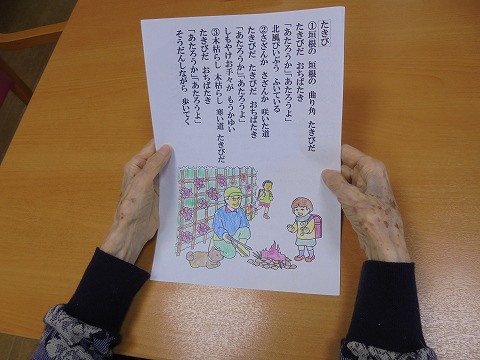 たきび
①垣根の 垣根の 曲り角 たきびだ
たきびだ おちばたき
「あたろうか」「あたろうよ」
北風ぴいぷう ふいている
②さざんか さざんか 咲いた道
たきびだ たきびだ おちばたき
「あたろうか」「あたろうよ」
しもやけお手々が もうかゆい
③木枯らし 木枯らし 寒い道 たきびだ
たきびだ おちばたき
「あたろうか」「あたろうよ」
そうだんしながら 歩いてく